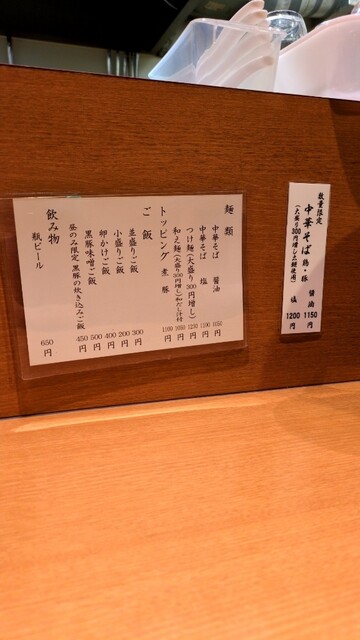 麺類
中華そば 醤油 1050円
中華そば 塩 1100円
つけ麺(大盛り300円増し) 1250円
和え麺(大盛り300円増し)和だし汁付 1050円
トッピング 煮豚
ご飯
並盛りご飯 300円
小盛りご飯 200円
卵かけご飯 400円
黒豚味噌ご飯 500円
昼のみ限定 黒豚の炊き込みご飯 450円
飲み物
瓶ビール 650円
数量限定
中華そば 鶏・豚 醤油 1150円
(大盛り300円増し) 塩 1200円